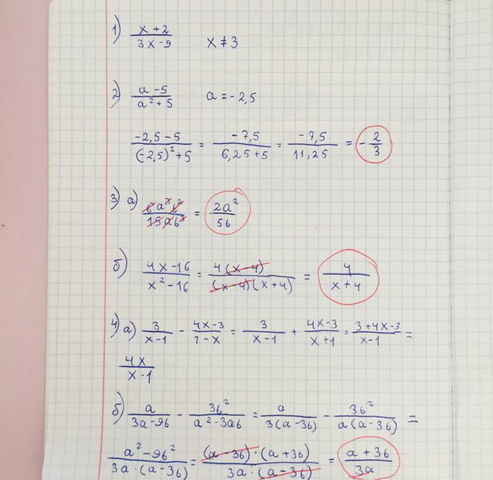 1) (x+2)/(3x-9) x ≠ 3
2) (a-5)/(a²+5) a = -2,5
(-2,5-5)/((-2,5)²+5) = (-7,5)/(6,25+5) = (-7,5)/(11,25) = -2/3
3) а) = 2a²/5b
б) (4x-16)/(x²-16) = 4(x-4)/((x-4)(x+4)) = 4/(x+4)
4) а) 3/(x-1) - (4x-3)/(1-x) = 3/(x-1) + (4x-3)/(x+1) = (3+4x-3)/(x-1) =
4x/(x-1)
б) a/(3a-9b) - 3b²/(a²-3ab) = a/(3(a-3b)) - 3b²/(a(a-3b)) =
(a²-9b²)/(3a·(a-3b)) = (a-3b)·(a+3b)/(3a·(a-3b)) = (a+3b)/3a